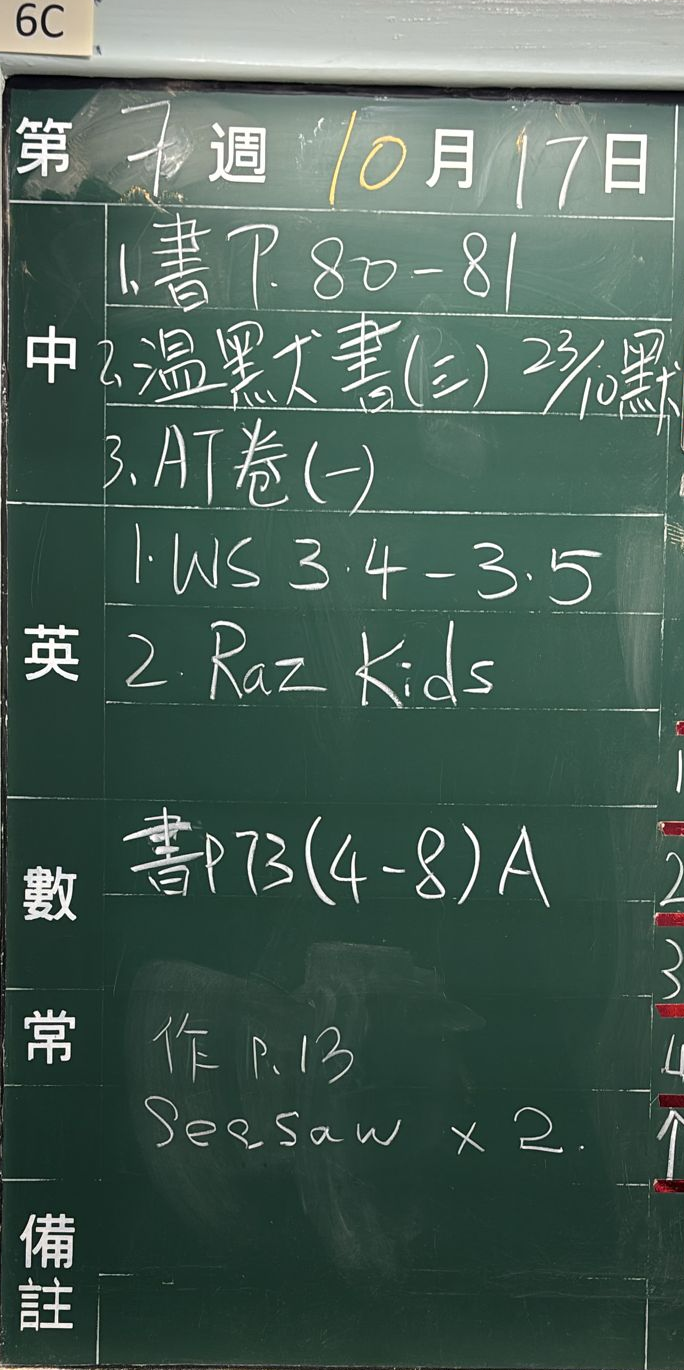 6C
第 7 週 10 月 17 日
中
1.書 P. 80-81
2.温默書(三) 23/10默
3.AT卷(一)
英
1.WS 3.4-3.5
2. Raz Kids
數
書P73(4-8)A
常
作 P.13
Seesaw x 2.
備註
1
2
3
4